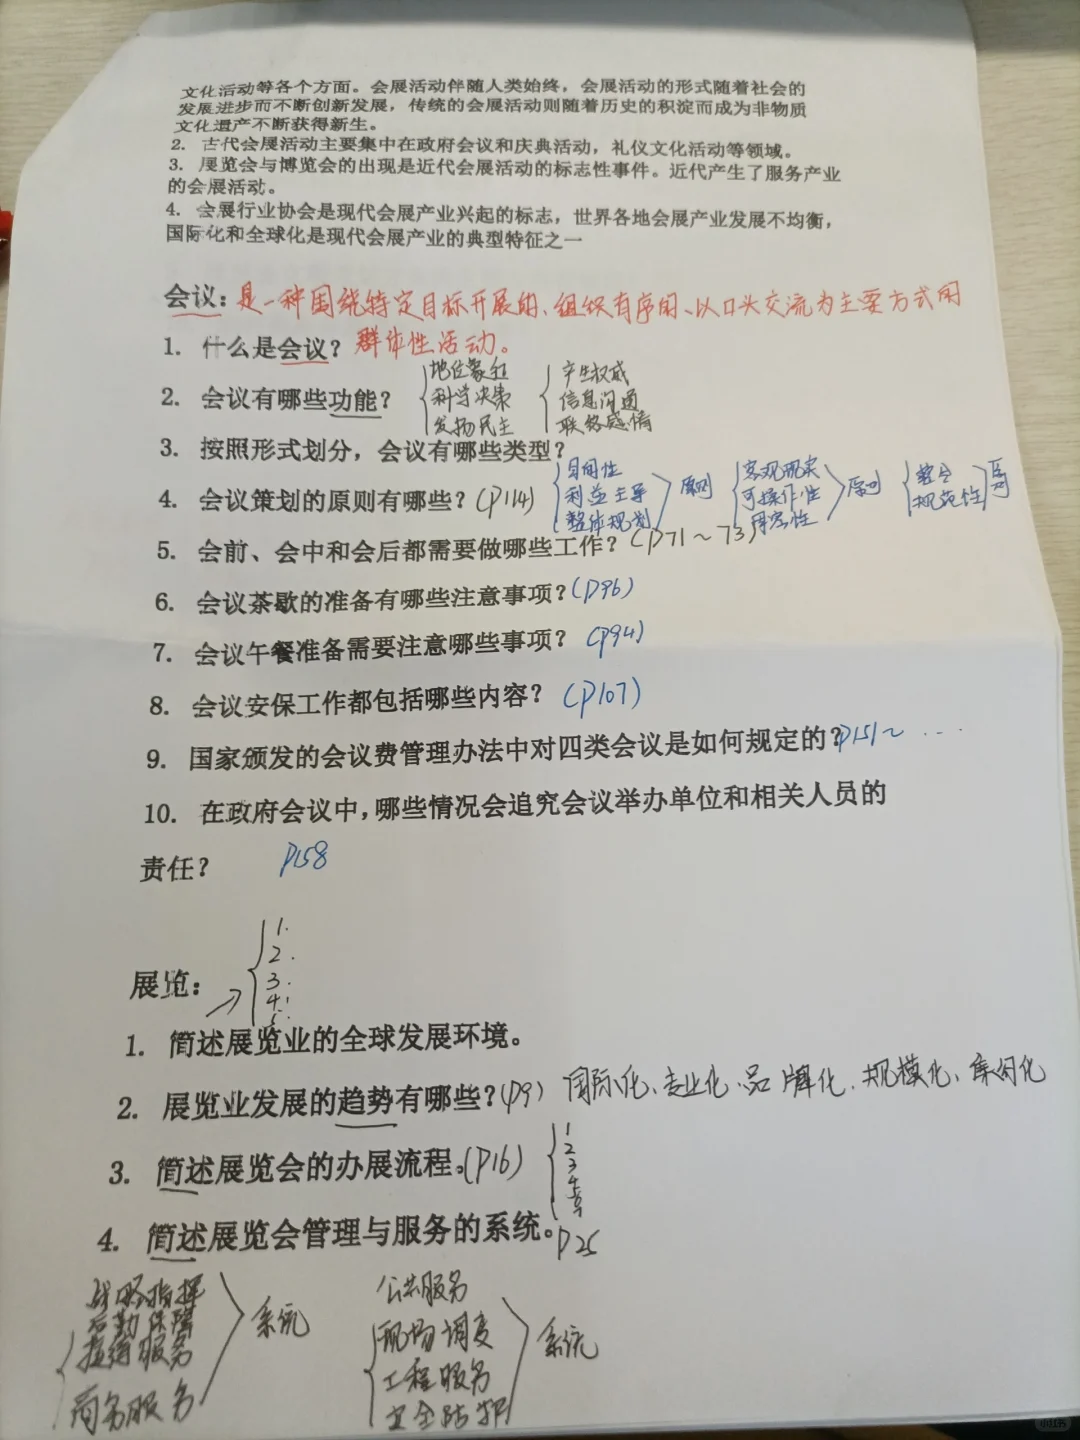 文化活动等各个方面。会展活动伴随人类始终，会展活动的形式随着社会的
发展进步而不断创新发展，传统的会展活动则随着历史的积淀而成为非物质
文化遗产不断获得新生。
2. 古代会展活动主要集中在政府会议和庆典活动，礼仪文化活动等领域。
3. 展览会与博览会的出现是近代会展活动的标志性事件。近代产生了服务产业
的会展活动。
4. 会展行业协会是现代会展产业兴起的标志，世界各地会展产业发展不均衡，
国际化和全球化是现代会展产业的典型特征之一
会议：是一种围绕特定目标开展的、组织有序的、以口头交流为主要方式的
1. 什么是会议？ 群体性活动。
地位象征 产生权威
2. 会议有哪些功能？ 科学决策 信息沟通
发扬民主 联络感情
3. 按照形式划分，会议有哪些类型？
目的性 客观现实
4. 会议策划的原则有哪些？(P114) 利益主导 原则 可操作性 原则 规范性
整体规划
5. 会前、会中和会后都需要做哪些工作？(P71～73)
6. 会议茶歇的准备有哪些注意事项？(P96)
7. 会议午餐准备需要注意哪些事项？ (P94)
8. 会议安保工作都包括哪些内容？ (P107)
9. 国家颁发的会议费管理办法中对四类会议是如何规定的？P151～ ····
10. 在政府会议中，哪些情况会追究会议举办单位和相关人员的
责任？ P158
1.
2.
展览： 3.
4.
5.
1. 简述展览业的全球发展环境。
2. 展览业发展的趋势有哪些？(P9) 国际化、专业化、品牌化、规模化、集约化
3. 简述展览会的办展流程。(P16) 1 2 3 4
4. 简述展览会管理与服务的系统。P25
战略指挥 公共服务
后勤保障 系统 现场调度 系统
接待服务 工程服务
商务服务 安全防护